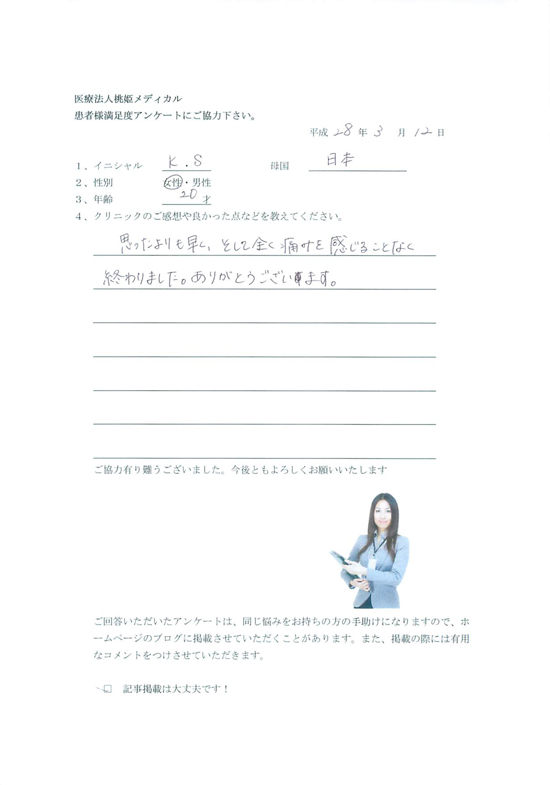 医療法人桃姫メディカル
患者様満足度アンケートにご協力下さい。
平成 28 年 3 月 12 日
1、イニシャル K.S 母国 日本
2、性別 女性・男性
3、年齢 20 才
4、クリニックのご感想や良かった点などを教えてください。
思ったよりも早く、そして全く痛みを感じることなく
終わりました。ありがとうございます。
ご協力有り難うございました。今後ともよろしくお願いいたします
ご回答いただいたアンケートは、同じ悩みをお持ちの方の手助けになりますので、ホ
ームページのブログに掲載させていただくことがあります。また、掲載の際には有用
なコメントをつけさせていただきます。
□ 記事掲載は大丈夫です！